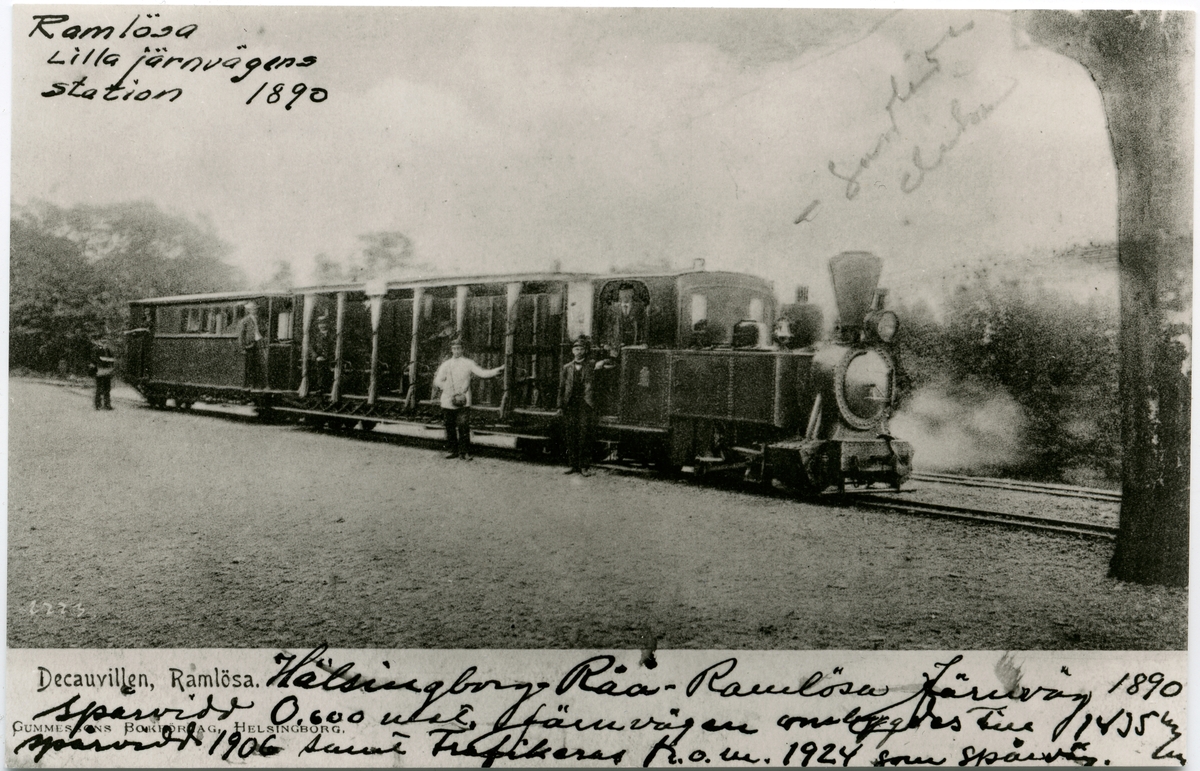 Ramlösa
Lilla järnvägens
station 1890
1273
Decauvillen, Ramlösa. Hälsingborg-Råå-Ramlösa Järnväg 1890
spårvidd 0,600 mst. Järnvägen ombyggdes till 1435 m/m
GUMMESSONS BOKFÖRLAG, HELSINGBORG.
spårvidd 1906 samt Trafikeras fr.o.m. 1924 som spårväg.